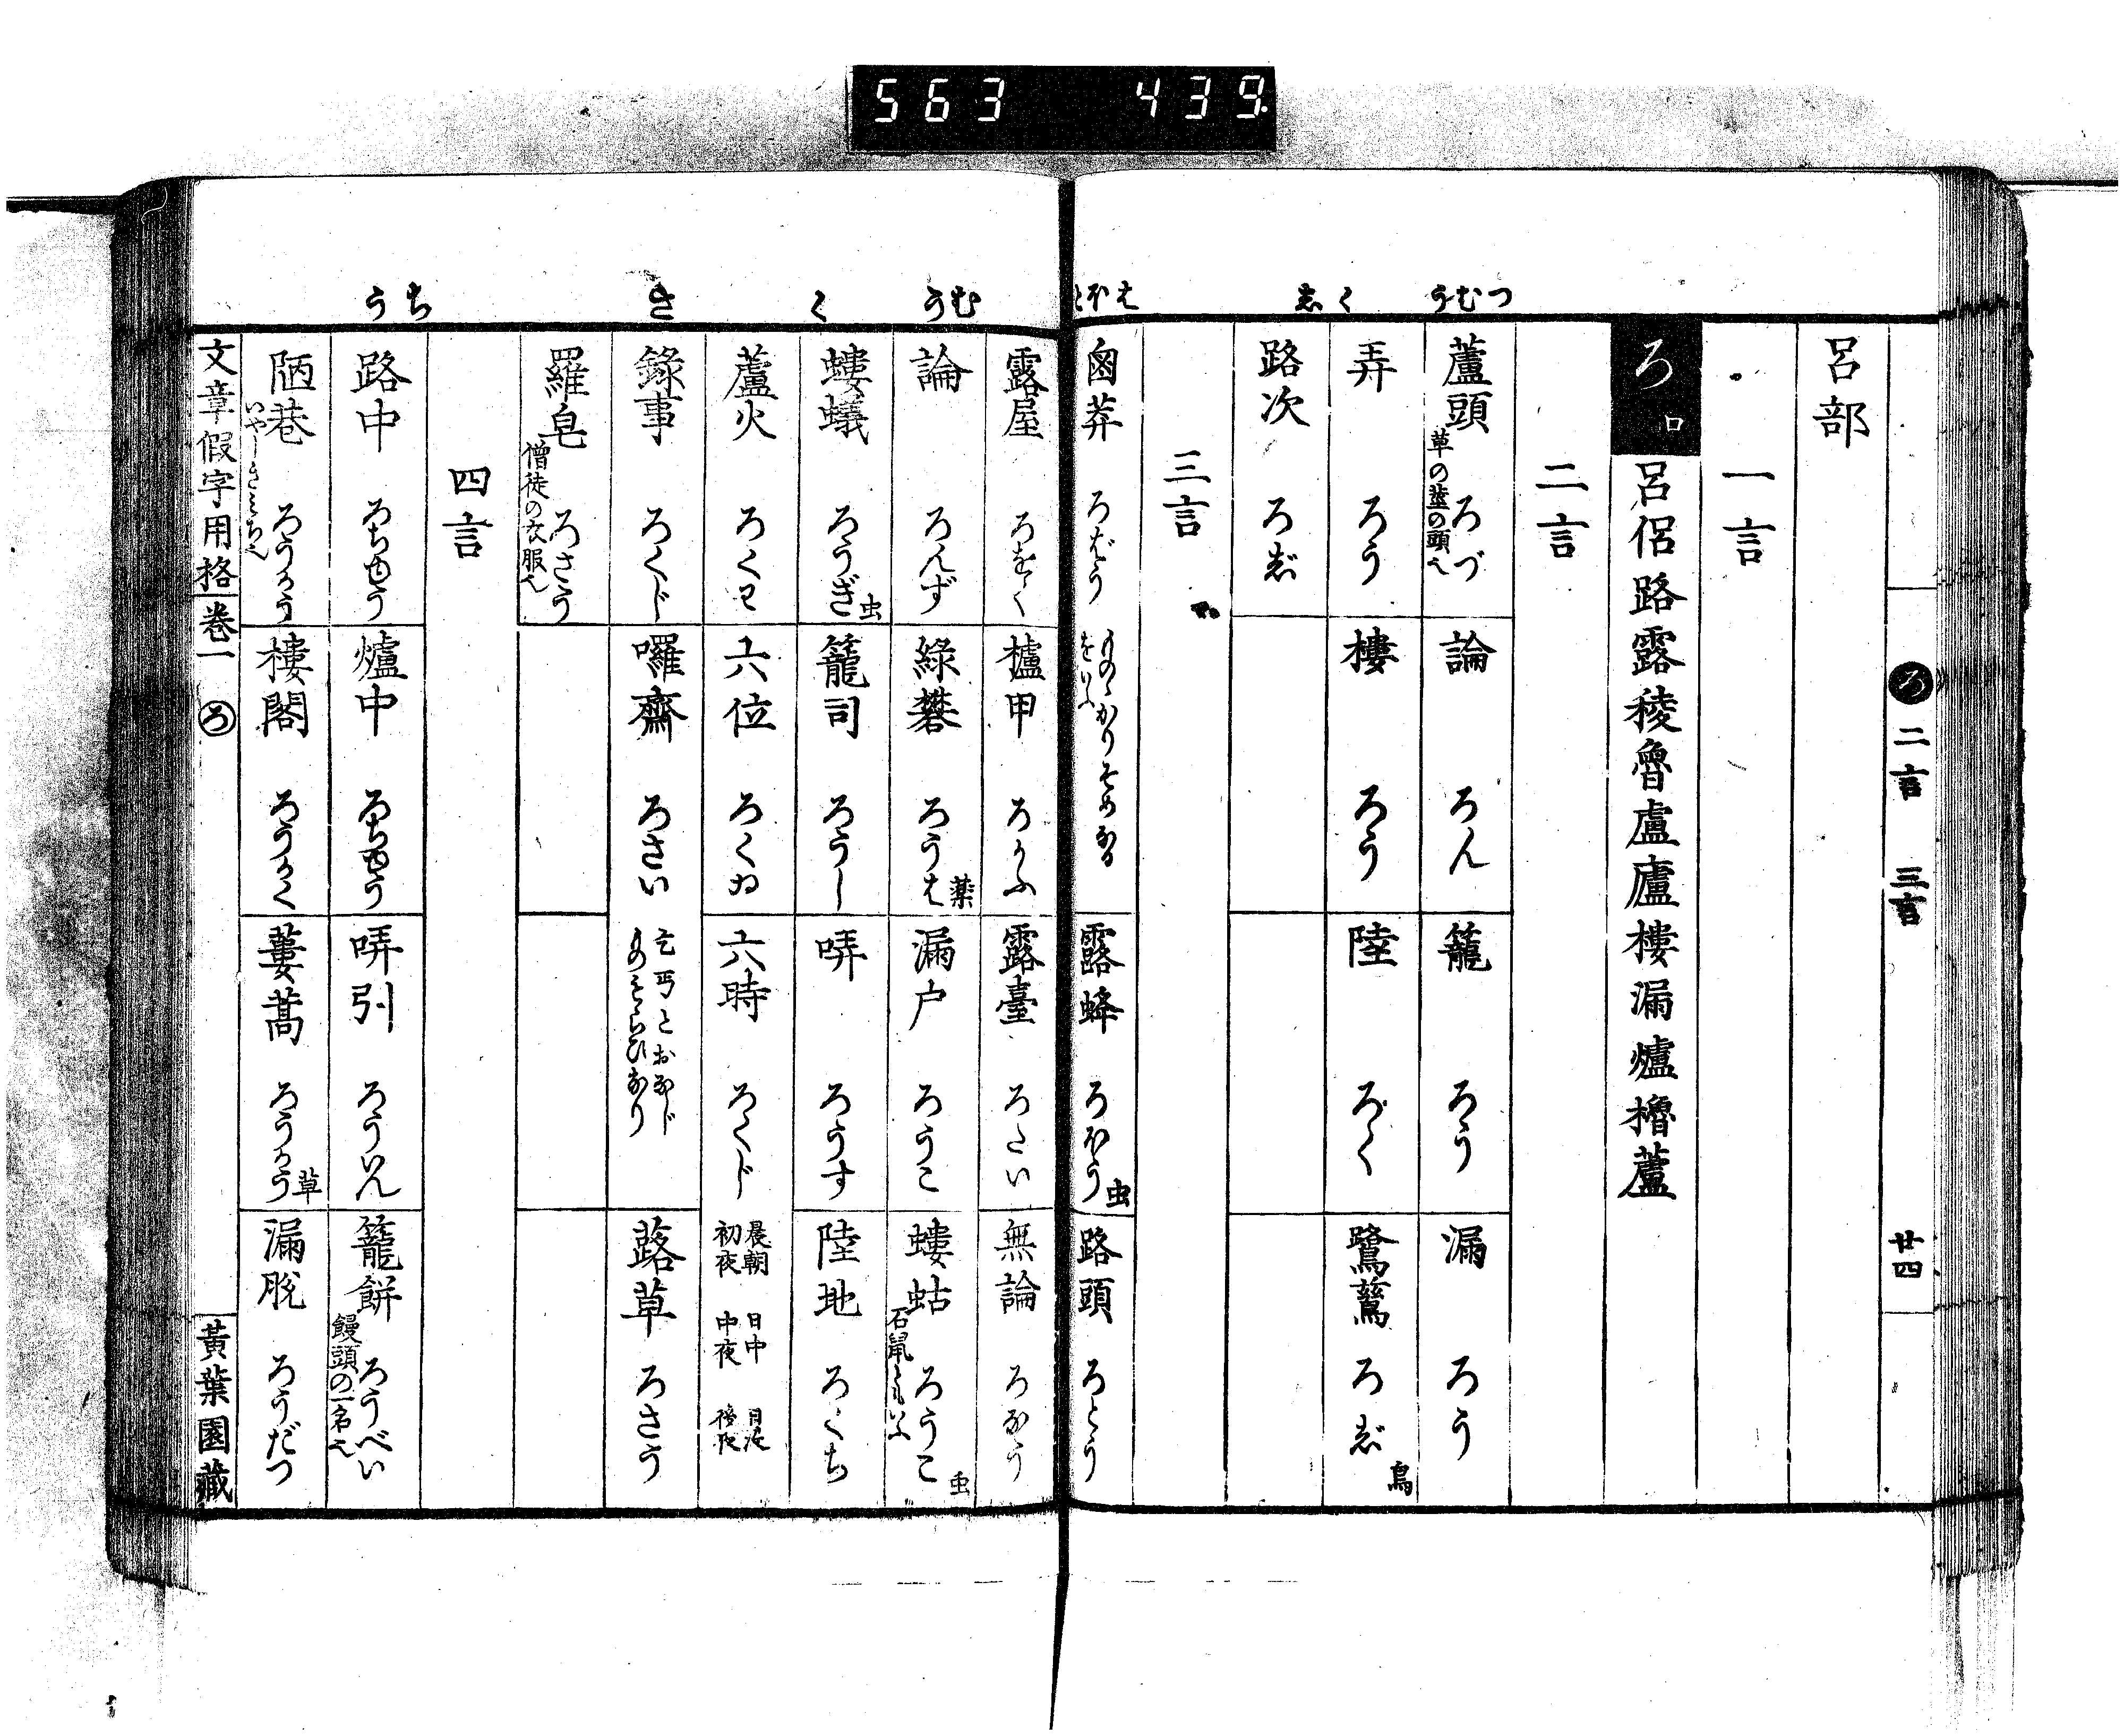 563 439
ろ 二言 三言 廿四
呂部
一言
ろ ロ 呂侶路露稜魯盧廬樓漏爐櫓蘆
二言
つむう
蘆頭 ろづ 草の莖の頭也
論 ろん
籠 ろう
漏 ろう
く
弄 ろう
樓 ろう
陸 ろく
鷺鷥 ろし゛ 鳥
し
路次 ろし゛
三言
はほと
鹵莽 ろばう ものゝかりそめなるをいふ
露蜂 ろほう 虫
路頭 ろとう
むう
露屋 ろをく
櫨甲 ろかふ
露臺 ろたい
無論 ろなう
論 ろんず
綠礬 ろうは 薬
漏戸 ろうこ
螻蛄 ろうこ 虫 石鼠ともいふ
く
螻蟻 ろうぎ 虫
籠司 ろうし
哢 ろうす
陸地 ろくち
蘆火 ろくわ
六位 ろくゐ
六時 ろくじ 晨朝 日中 日没 初夜 中夜 後夜
さ
錄事 ろくじ
囉齋 ろさい 乞丐とおなじものもらひなり
蕗草 ろさう
羅皂 ろさう 僧徒の衣服也
四言
ちう
路中 ろちゆう
爐中 ろちゆう
哢引 ろういん
籠餅 ろうべい 饅頭の一名也
陋巷 ろうかう いやしきみち也
樓閣 ろうかく
蔞蒿 ろうかう 草
漏脫 ろうだつ
文章假字用格 卷一 ろ 黃葉園藏